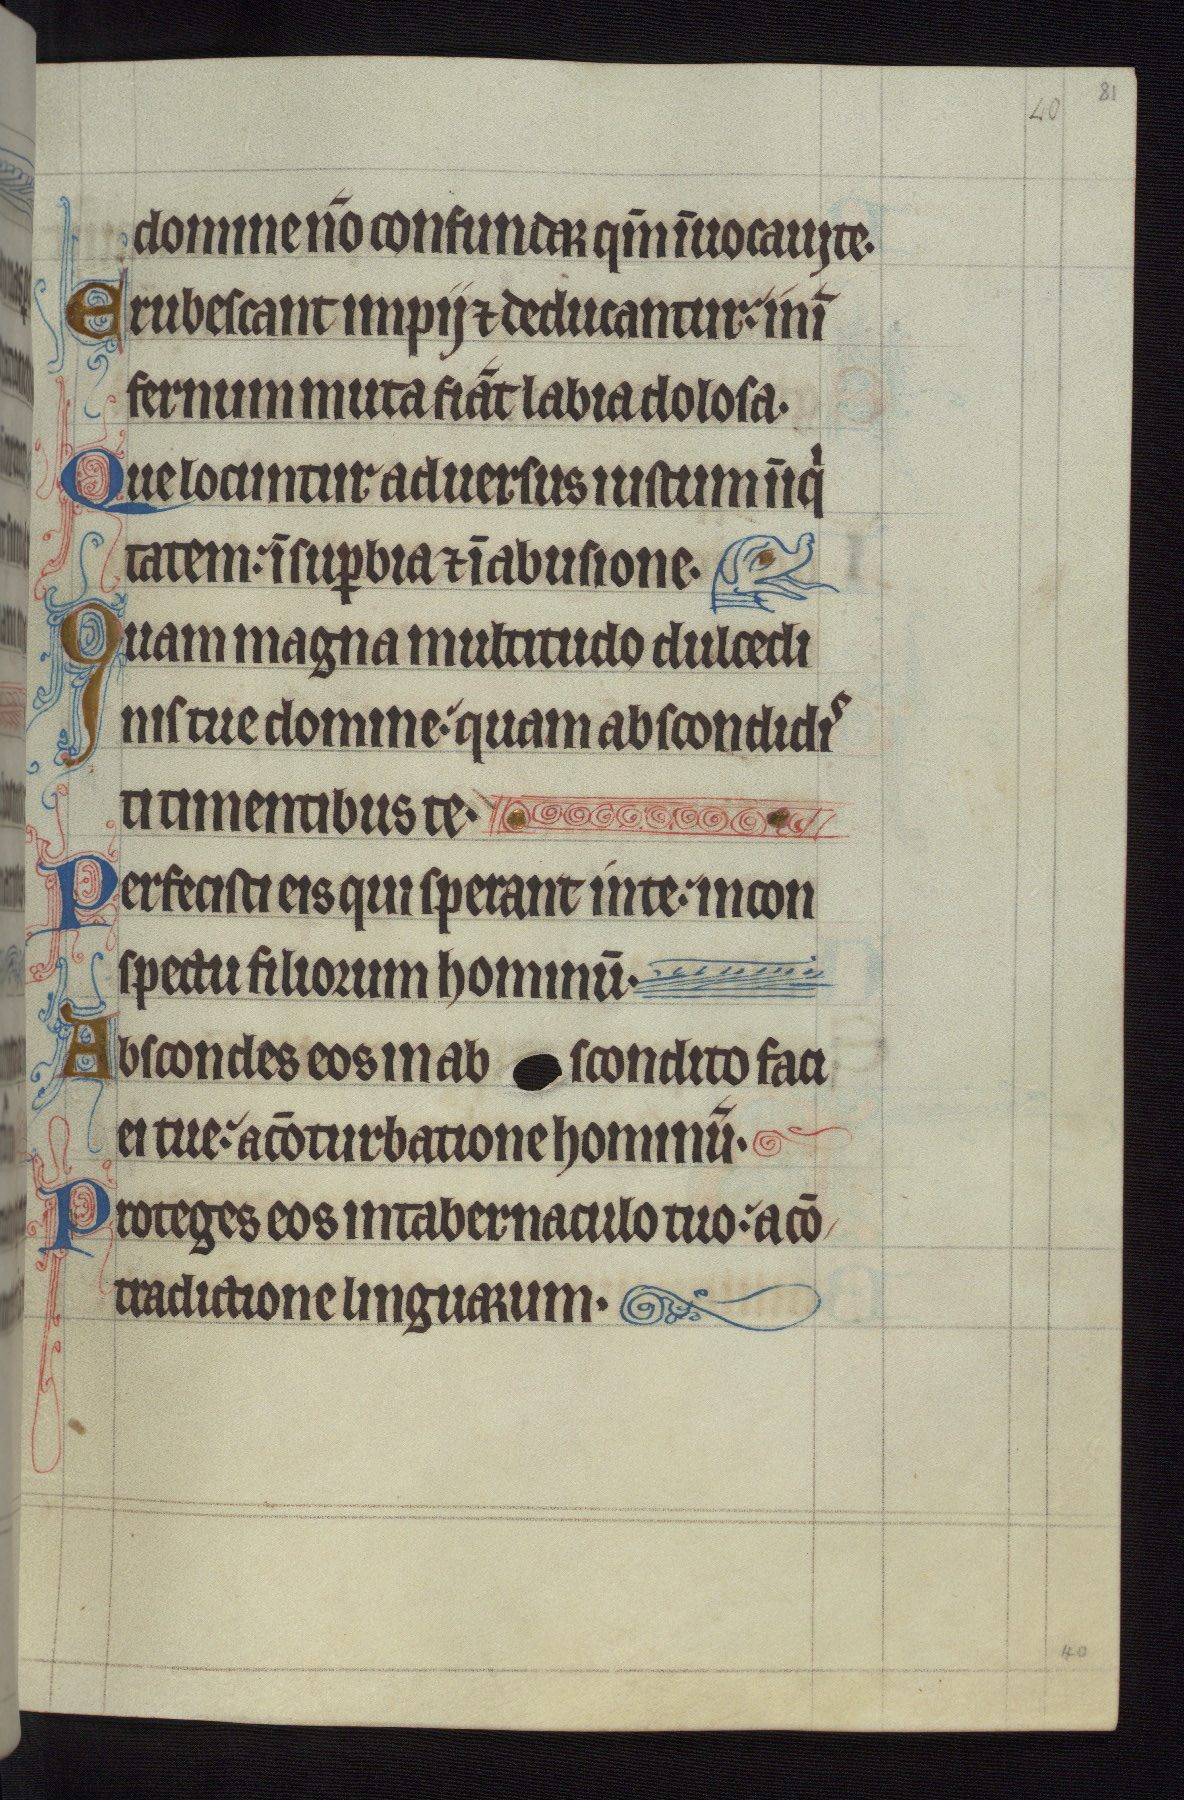 40 81
domine nō confundar qm̄ īuocauı te.
Erubescant impij ⁊ deducantur: in ī
fernum muta fiāt labia dolosa.
Que locuntur aduersus iustum īiq̇
tatem: ī suꝑbia ⁊ ī abusione.
Quam magna multitudo dulcedi
nis tue domine: quam abscondidiˢ
ti timentibus te.
Perfecisti eis qui sperant in te: in con
spectu filiorum hominū.
Abscondes eos in ab scondito faci
ei tue: a cōturbatione hominū.
Proteges eos in tabernaculo tuo: a cō
tradictione linguarum.
40